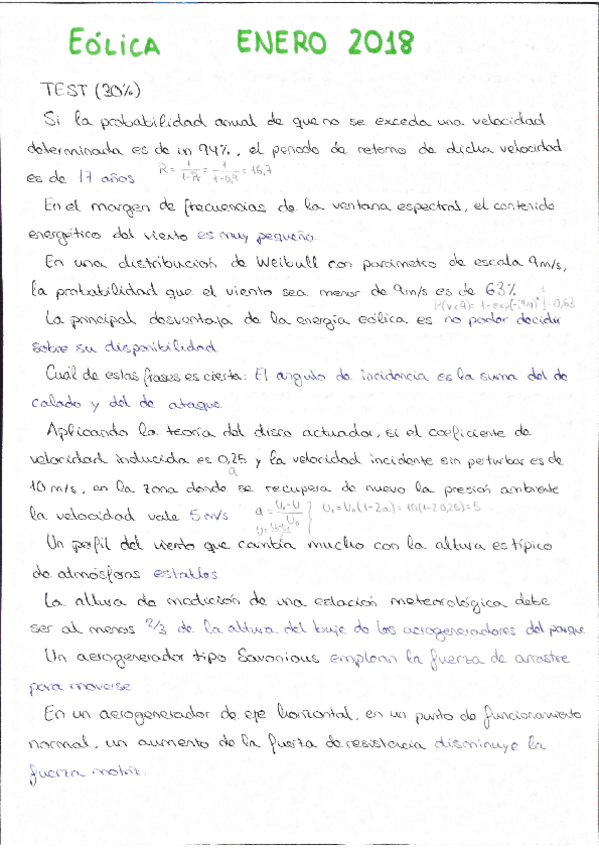 EÓLICA ENERO 2018
TEST (30%)
Si la probabilidad anual de que no se exceda una velocidad
determinada es de un 94%, el periodo de retorno de dicha velocidad
es de 17 años R = 1/(1-Pr) = 1/(1-0,9) = 16,7
En el margen de frecuencias de la ventana espectral, el contenido
energético del viento es muy pequeño.
En una distribución de Weibull con parámetro de escala 9m/s,
la probabilidad que el viento sea menor de 9m/s es de 63%
La principal desventaja de la energía eólica es no poder decidir
sobre su disponibilidad
Cuál de estas frases es cierta: El angulo de incidencia es la suma del de
calado y del de ataque
Aplicando la teoría del disco actuador, si el coeficiente de
velocidad inducida es 0,25 y la velocidad incidente sin perturbar es de
a
10 m/s, en la zona donde se recupera de nuevo la presión ambiente
la velocidad vale 5 m/s U₁ = U₀(1-2a) = 10(1-2·0,25) = 5
Un perfil del viento que cambia mucho con la altura es típico
de atmósferas estables
La altura de medición de una estación meteorológica debe
ser al menos 2/3 de la altura del buje de los aerogeneradores del parque
Un aerogenerador tipo Savonious emplean la fuerza de arrastre
para moverse
En un aerogenerador de eje horizontal, en un punto de funcionamiento
normal, un aumento de la fuerza de resistencia disminuye la
fuerza motriz.